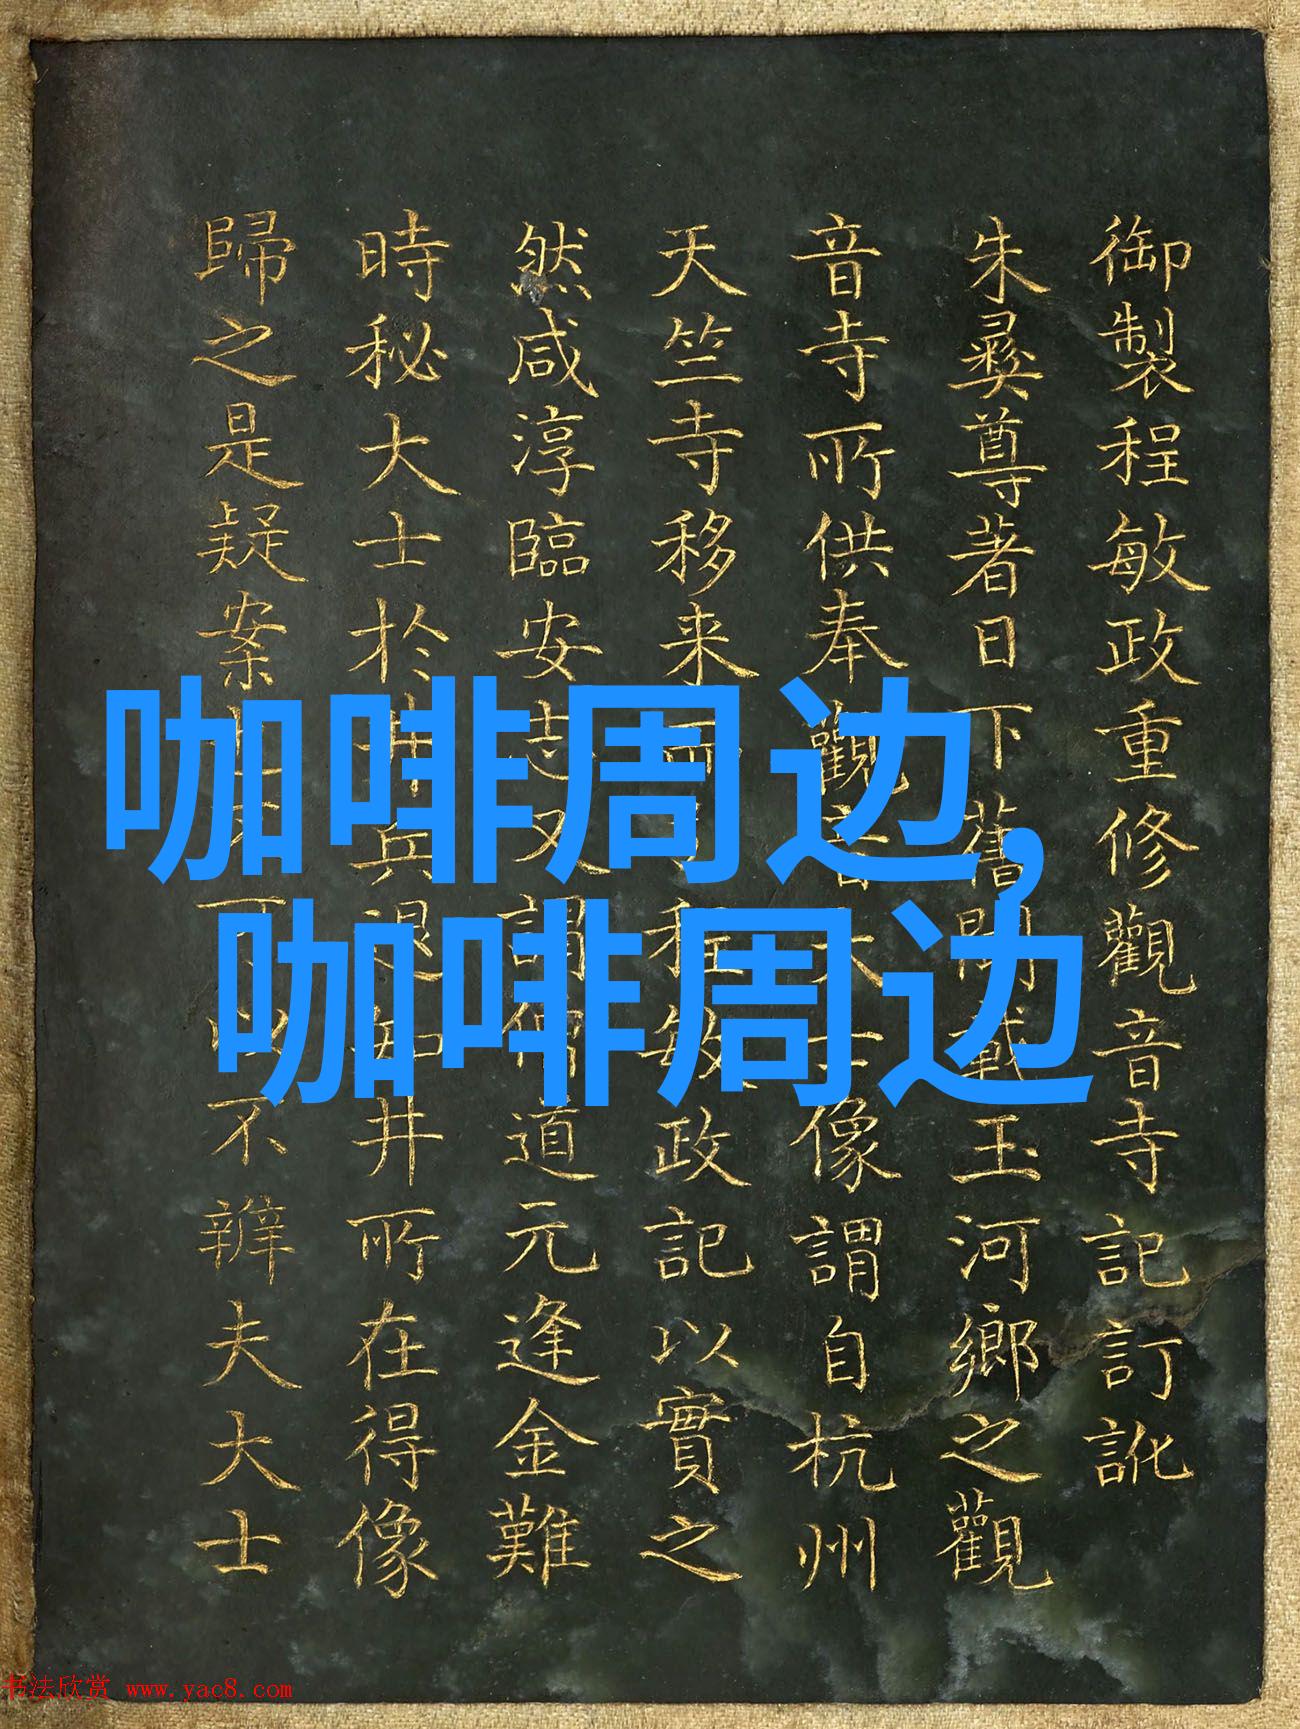 御製程敏政重修觀音寺記訂訛
朱彝尊著日下舊聞載玉河鄉之觀
音寺所供奉觀音大士像謂自杭州
天竺寺移来而程敏政記以實之
然咸淳臨安志又謂僧道元逢金難
時秘大士於井兵退知井所在得像
歸之是疑案可以不辨夫大士
咖啡周边,
咖啡周边
书法欣赏 www.yac8.com